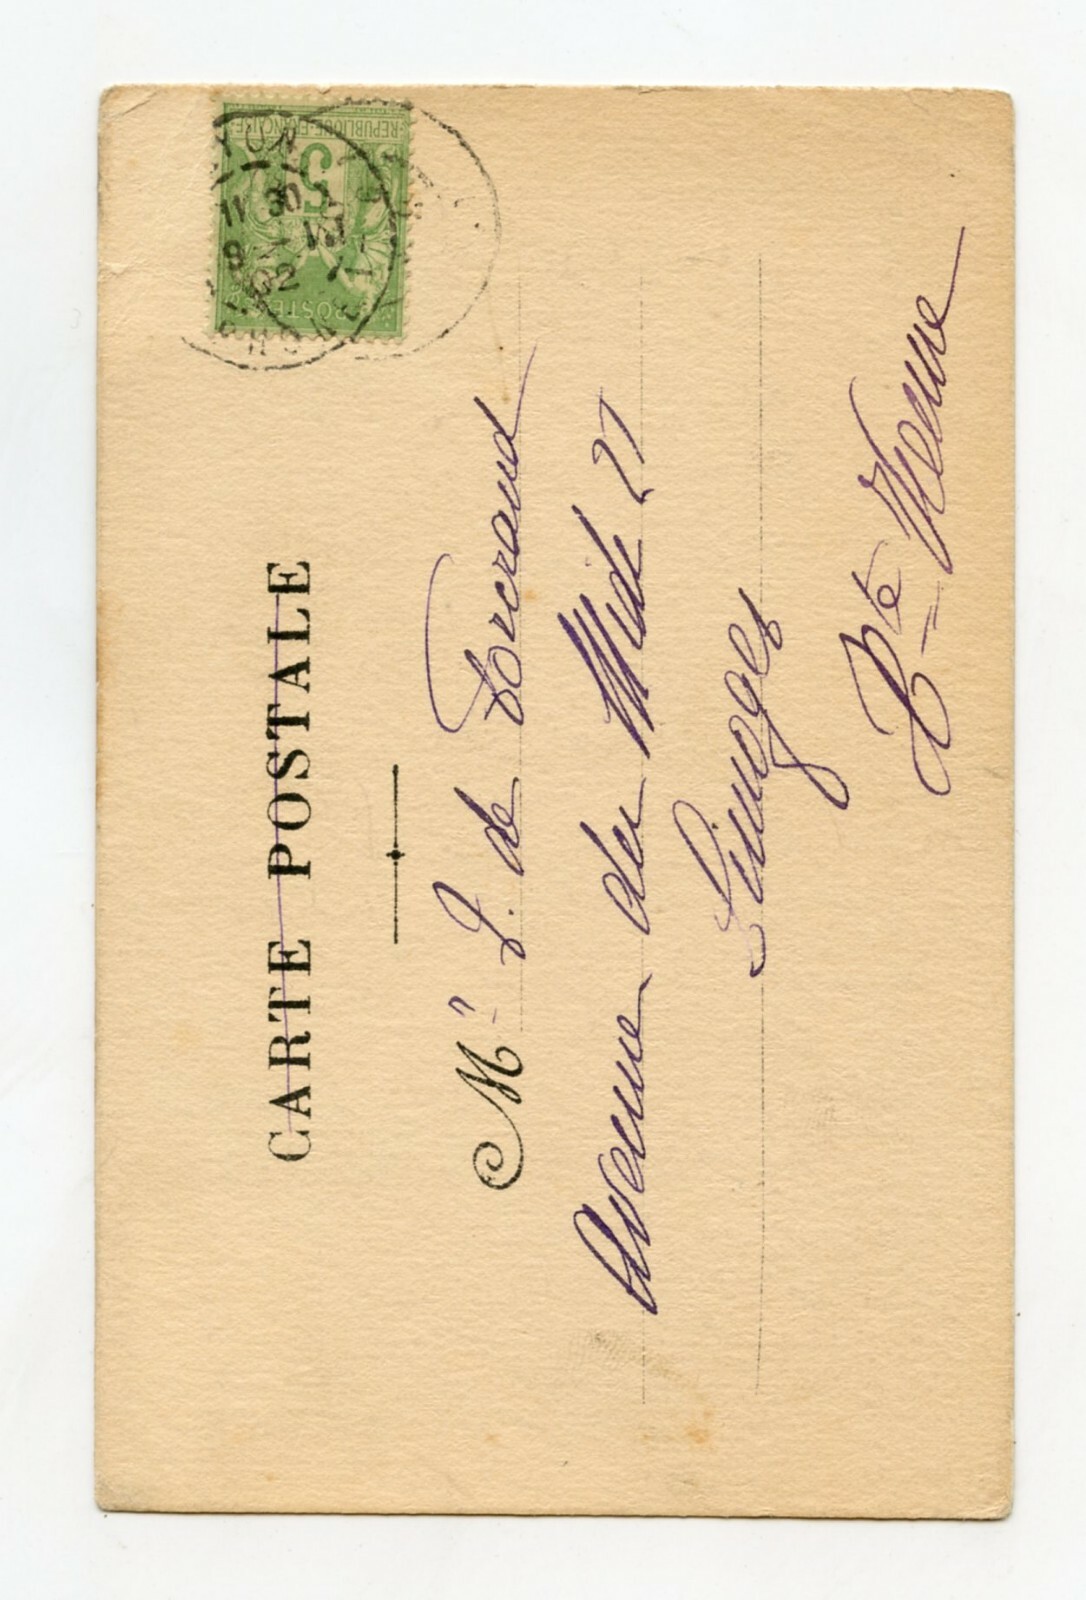 CARTE POSTALE
Mr J. de Forcrand
Avenue du Midi 27
Limoges
Hte Vienne
REPUBLIQUE FRANÇAISE
5
POSTES
11 30
02
RHONE